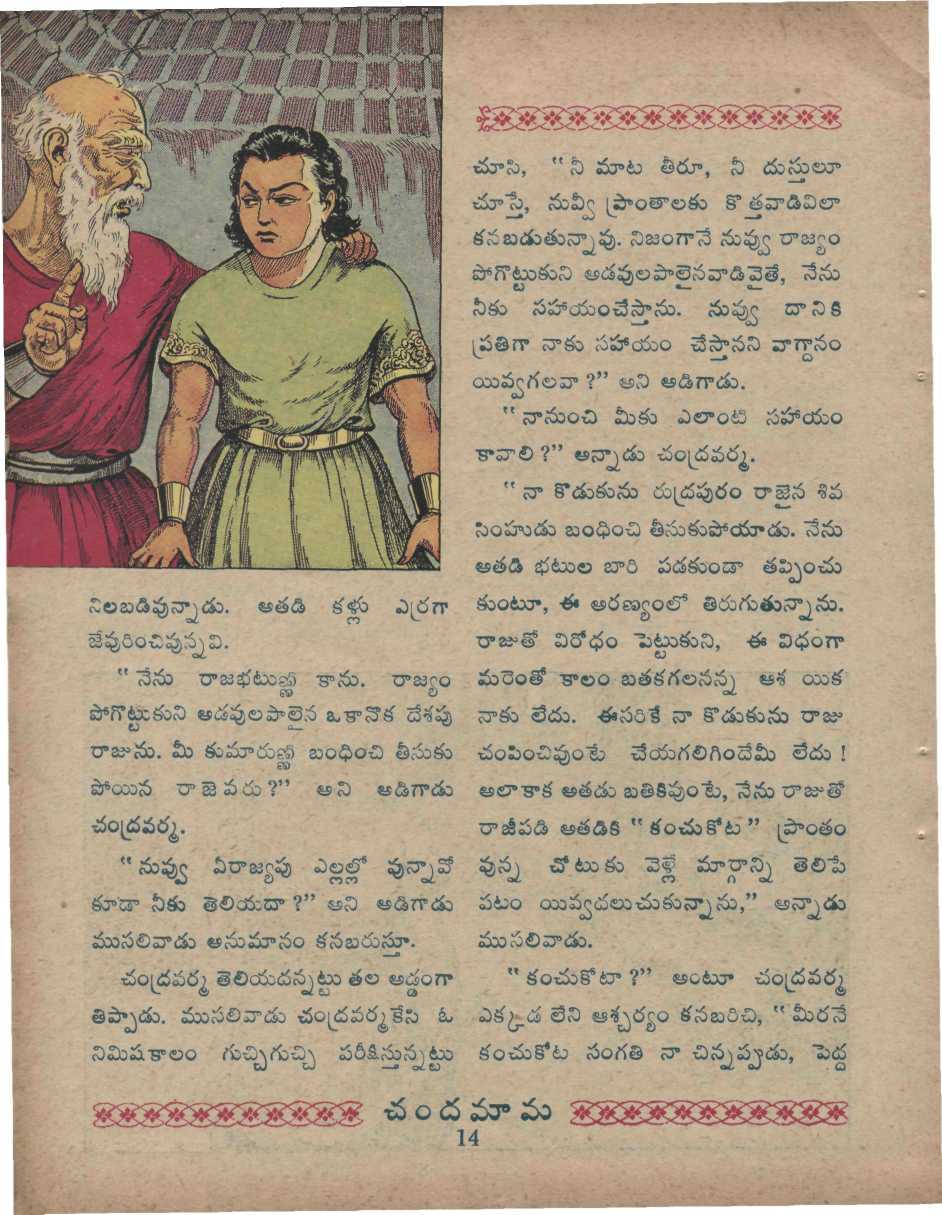 నిలబడివున్నాడు. అతడి కళ్లు ఎర్రగా
జేవురించివున్నవి.
“నేను రాజభటుణ్ణి కాను. రాజ్యం
పోగొట్టుకుని అడవులపాలైన ఒకానొక దేశపు
రాజును. మీ కుమారుణ్ణి బంధించి తీసుకు
పోయిన రాజెవరు?” అని అడిగాడు
చంద్రవర్మ.
“నువ్వు ఏరాజ్యపు ఎల్లల్లో వున్నావో
కూడా నీకు తెలియదా?” అని అడిగాడు
ముసలివాడు అనుమానం కనబరుస్తూ.
చంద్రవర్మ తెలియదన్నట్టు తల అడ్డంగా
తిప్పాడు. ముసలివాడు చంద్రవర్మకేసి ఓ
నిమిషకాలం గుచ్చిగుచ్చి పరీక్షిస్తున్నట్టు
చూసి, “నీ మాట తీరూ, నీ దుస్తులూ
చూస్తే, నువ్వీ ప్రాంతాలకు కొత్తవాడివిలా
కనబడుతున్నావు. నిజంగానే నువ్వు రాజ్యం
పోగొట్టుకుని అడవులపాలైనవాడివైతే, నేను
నీకు సహాయంచేస్తాను. నువ్వు దానికి
ప్రతిగా నాకు సహాయం చేస్తానని వాగ్దానం
యివ్వగలవా?” అని అడిగాడు.
“నానుంచి మీకు ఎలాంటి సహాయం
కావాలి?” అన్నాడు చంద్రవర్మ.
“నా కొడుకును రుద్రపురం రాజైన శివ
సింహుడు బంధించి తీసుకుపోయాడు. నేను
అతడి భటుల బారి పడకుండా తప్పించు
కుంటూ, ఈ అరణ్యంలో తిరుగుతున్నాను.
రాజుతో విరోధం పెట్టుకుని, ఈ విధంగా
మరెంతో కాలం బతకగలనన్న ఆశ యిక
నాకు లేదు. ఈసరికే నా కొడుకును రాజు
చంపించివుంటే చేయగలిగిందేమీ లేదు!
అలాకాక అతడు బతికివుంటే, నేను రాజుతో
రాజీపడి అతడికి “కంచుకోట” ప్రాంతం
వున్న చోటుకు వెళ్లే మార్గాన్ని తెలిపే
పటం యివ్వదలుచుకున్నాను,” అన్నాడు
ముసలివాడు.
“కంచుకోటా?” అంటూ చంద్రవర్మ
ఎక్కడ లేని ఆశ్చర్యం కనబరిచి, “మీరనే
కంచుకోట సంగతి నా చిన్నప్పుడు, పెద్ద
చందమామ
14